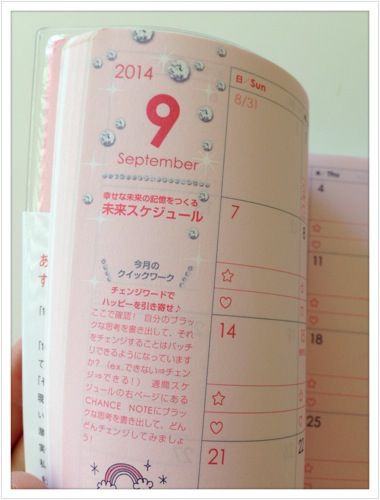 2014
9
September
幸せな未来の記憶をつくる
未来スケジュール
今月の
クイックワーク
チェンジワードで
ハッピーを引き寄せ♪
ここで確認! 自分のブラッ
クな思考を書き出して、それ
をチェンジすることはバッチ
リできるようになっています
か? (ex.できない⇒チェン
ジ⇒できる!) 週間スケ
ジュールの右ページにある
CHANCE NOTEにブラッ
クな思考を書き出して、どん
どんチェンジしてみましょ
う!
日/Sun
8/31
7
14
21
Thu
4
11
18
25